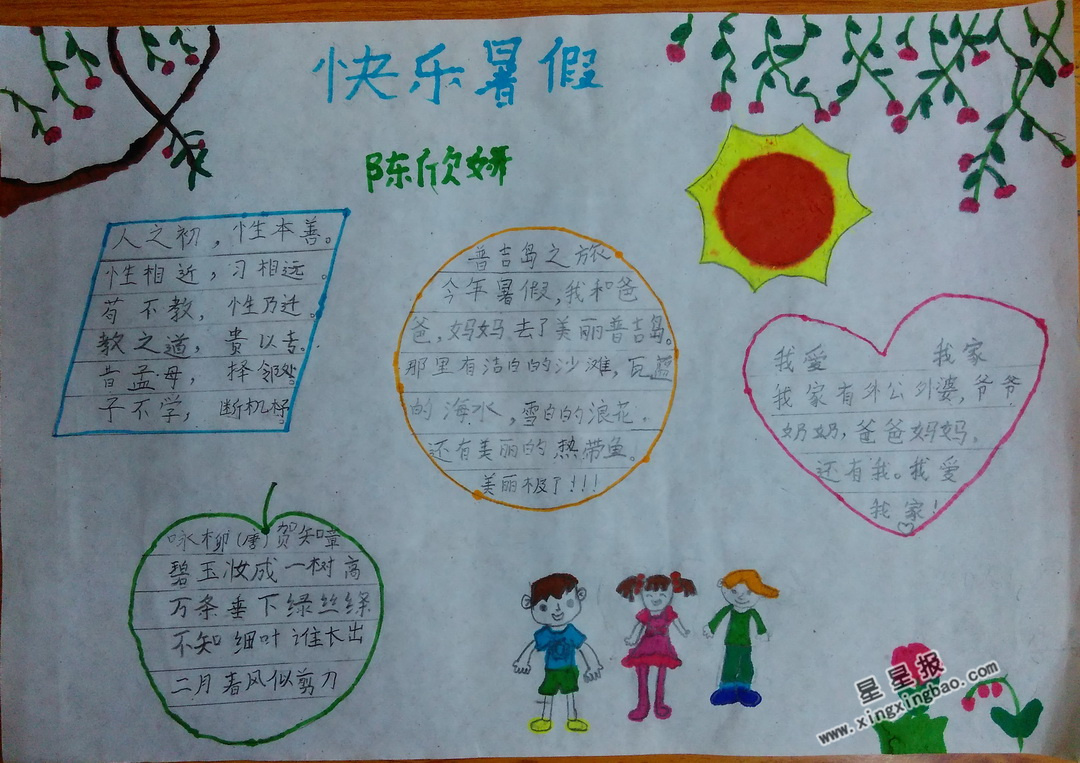 快乐暑假
陈欣妍
人之初，性本善。
性相近，习相远。
苟不教，性乃迁。
教之道，贵以专。
昔孟母，择邻
子不学，断机杼
普吉岛之旅
今年暑假，我和爸
爸，妈妈去了美丽普吉岛。
那里有洁白的沙滩，瓦蓝
的海水，雪白的浪花.
还有美丽的热带鱼。
美丽极了!!!
我爱 我家
我家有外公外婆，爷爷
奶奶，爸爸妈妈.
还有我。我爱
我家!
咏柳(唐)贺知章
碧玉妆成一树高
万条垂下绿丝绦
不知细叶谁
二月春风似剪刀
星星报
www.xingxingbao.com